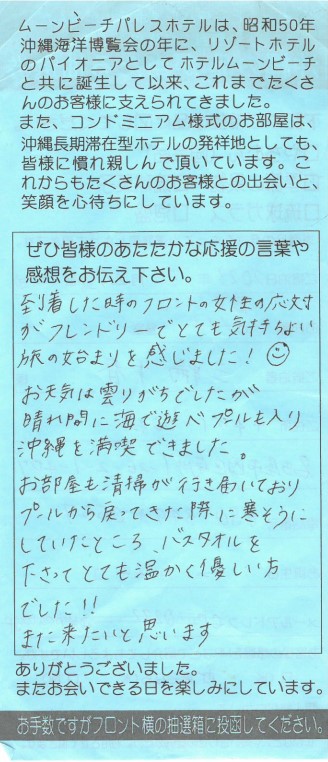 ムーンビーチパレスホテルは、昭和50年
沖縄海洋博覧会の年に、リゾートホテル
のパイオニアとしてホテルムーンビーチ
と共に誕生して以来、これまでたくさ
んのお客様に支えられてきました。
また、コンドミニアム様式のお部屋は、
沖縄長期滞在型ホテルの発祥地としても、
皆様に慣れ親しんで頂いています。こ
れからもたくさんのお客様との出会いと、
笑顔を心待ちにしています。
ぜひ皆様のあたたかな応援の言葉や
感想をお伝え下さい。
到着した時のフロントの女性の応対
がフレンドリーでとても気持ちよい
旅の始まりを感じました!
お天気は曇りがちでしたが
晴れ間に海で遊べプールも入り
沖縄を満喫できました。
お部屋も清掃が行き届いており
プールから戻ってきた際に寒そうに
していたところ、バスタオルを
下さってとても温かく優しい方
でした!!
また来たいと思います
ありがとうございました。
またお会いできる日を楽しみにしています。
お手数ですがフロント横の抽選箱に投函してください。